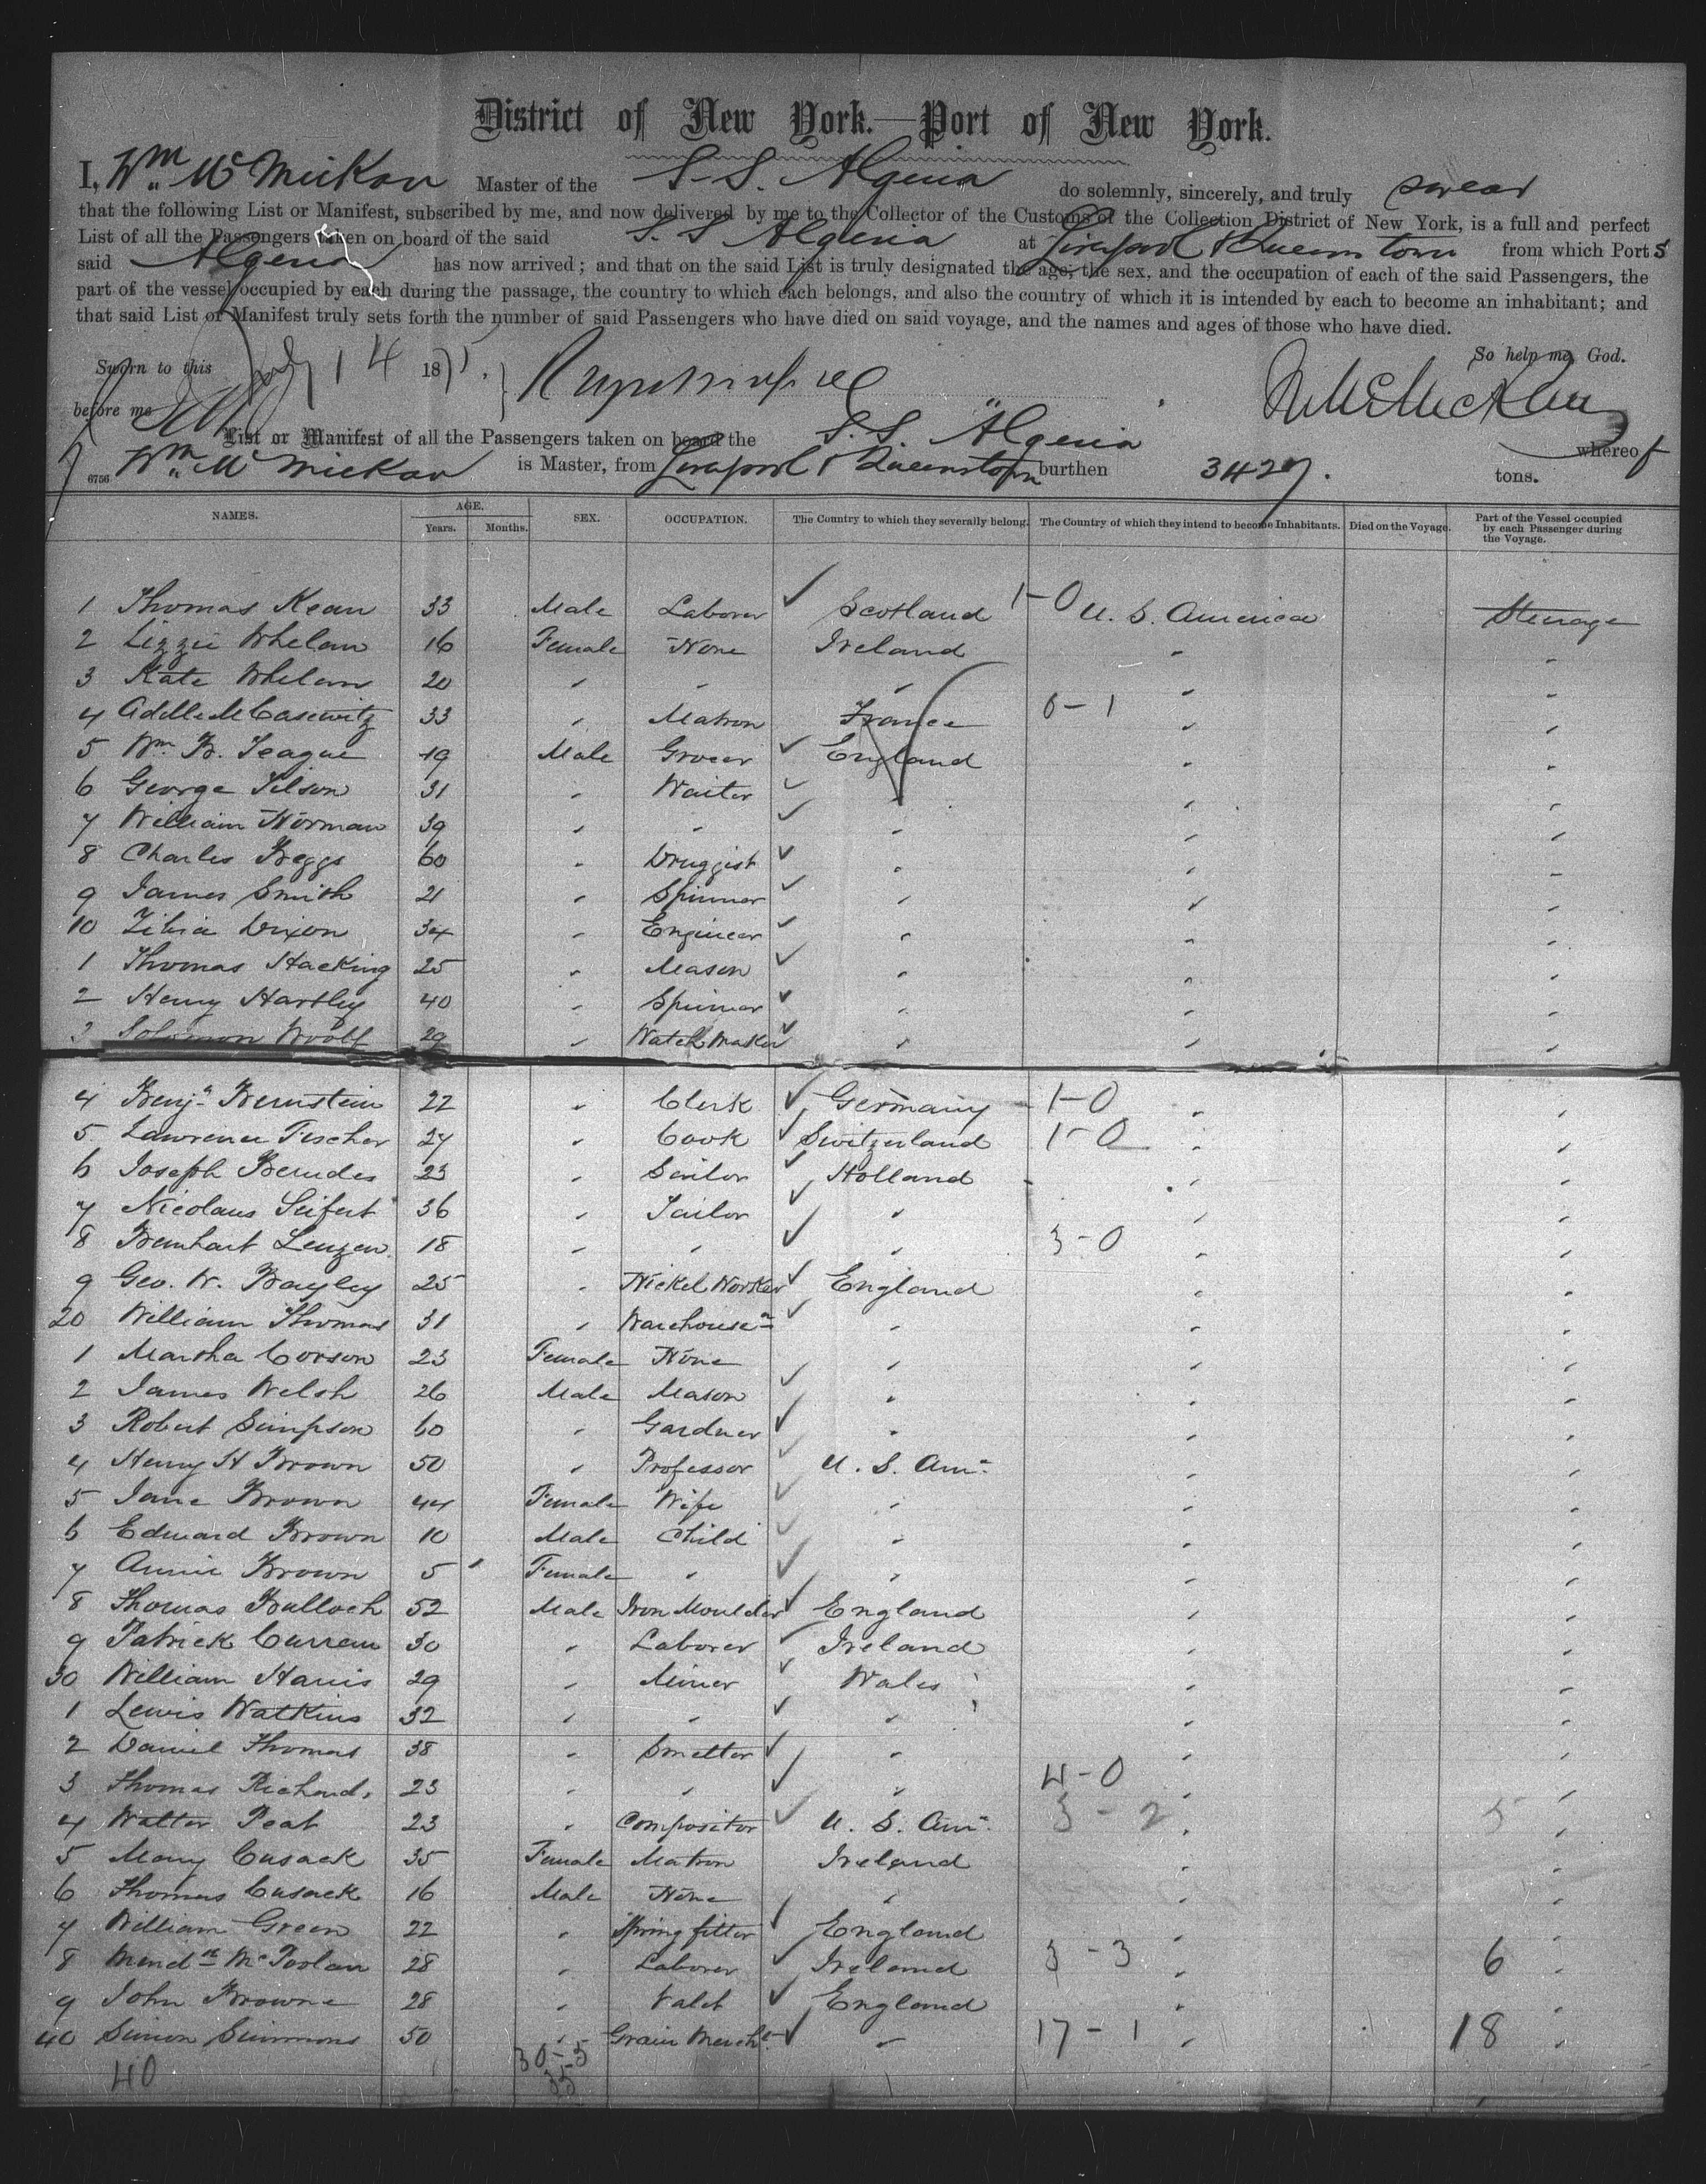 District of New York.—Port of New York.
I, Wm. McMickan Master of the S.S. Algeria do solemnly, sincerely, and truly swear
that the following List or Manifest, subscribed by me, and now delivered by me to the Collector of the Customs of the Collection District of New York, is a full and perfect
List of all the Passengers taken on board of the said S.S Algeria at Liverpool & Queenstown from which Ports
said Algeria has now arrived; and that on the said List is truly designated the age, the sex, and the occupation of each of the said Passengers, the
part of the vessel occupied by each during the passage, the country to which each belongs, and also the country of which it is intended by each to become an inhabitant; and
that said List or Manifest truly sets forth the number of said Passengers who have died on said voyage, and the names and ages of those who have died.
So help me God.
Sworn to this July 14 1875.
before me
List or Manifest of all the Passengers taken on board the S.S. "Algeria whereof
6756 Wm. McMickan is Master, from Liverpool & Queenstown burthen 3427. tons.
NAMES. AGE. Years. Months. SEX. OCCUPATION. The Country to which they severally belong. The Country of which they intend to become Inhabitants. Died on the Voyage. Part of the Vessel occupied by each Passenger during the Voyage.
1 Thomas Kean 33 Male Laborer Scotland 1-0 U. S. America Steerage
2 Lizzie Whelan 16 Female None Ireland " "
3 Kate Whelan 20 " " " " "
4 Adelle M Casewitz 33 " Matron France 0-1 " "
5 Wm. B. Teague 19 Male Grocer England " "
6 George Tilson 31 " Waiter " " "
7 William Norman 39 " " " " "
8 Charles Beggs 60 " Druggist " " "
9 James Smith 21 " Spinner " " "
10 Dixon 34 " Engineer " " "
1 Thomas Hacking 25 " Mason " " "
2 Henry Hartley 40 " Spinner " " "
3 Solomon Woolf 29 " Watch Maker " " "
4 Benja. Bernstein 22 " Clerk Germany 1-0 " "
5 Lawrence Fischer 27 " Cook Switzerland 1-0 " "
6 Joseph Berndes 23 " Sailor Holland " "
7 Nicolaus Seifert 36 " Tailor " " "
8 Bernhart Lenzen 18 " " " 3-0 " "
9 Geo. W. Bayley 25 " Nickel Worker England " "
20 William Thomas 31 " Warehousen " " "
1 Martha Corson 23 Female None " " "
2 James Welsh 26 Male Mason " " "
3 Robert Simpson 60 " Gardner " " "
4 Henry H Brown 50 " Professor U. S. Am. " "
5 Jane Brown 44 Female Wife " " "
6 Edward Brown 10 Male Child " " "
7 Annie Brown 5 Female " " " "
8 Thomas Bulloch 52 Male Iron Moulder England " "
9 Patrick Curran 30 " Laborer Ireland " "
30 William Harris 29 " Miner Wales " "
1 Lewis Watkins 32 " " " " "
2 Daniel Thomas 38 " Smelter " " "
3 Thomas Richards 23 " " " 4-0 " "
4 Walter Peat 23 " Compositor U. S. Am. 3-2 " 5 "
5 Mary Cusack 35 Female Matron Ireland " "
6 Thomas Cusack 16 Male None " " "
7 William Green 22 " Spring fitter England " "
8 28 " Laborer Ireland 3-3 " 6 "
9 John Browne 28 " Valet England " "
40 Simon Simmons 50 " Grain Mercht. " 17-1 " 18 "
40 30-5
35